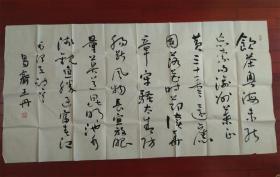 飲茶粤海未能
忘索句渝州葉正
黄三十一年還舊
國落花時節讀華
章牢騷太盛防
腸斷風物長宜放眼
量莫道昆明池水
淺觀魚勝過富春江